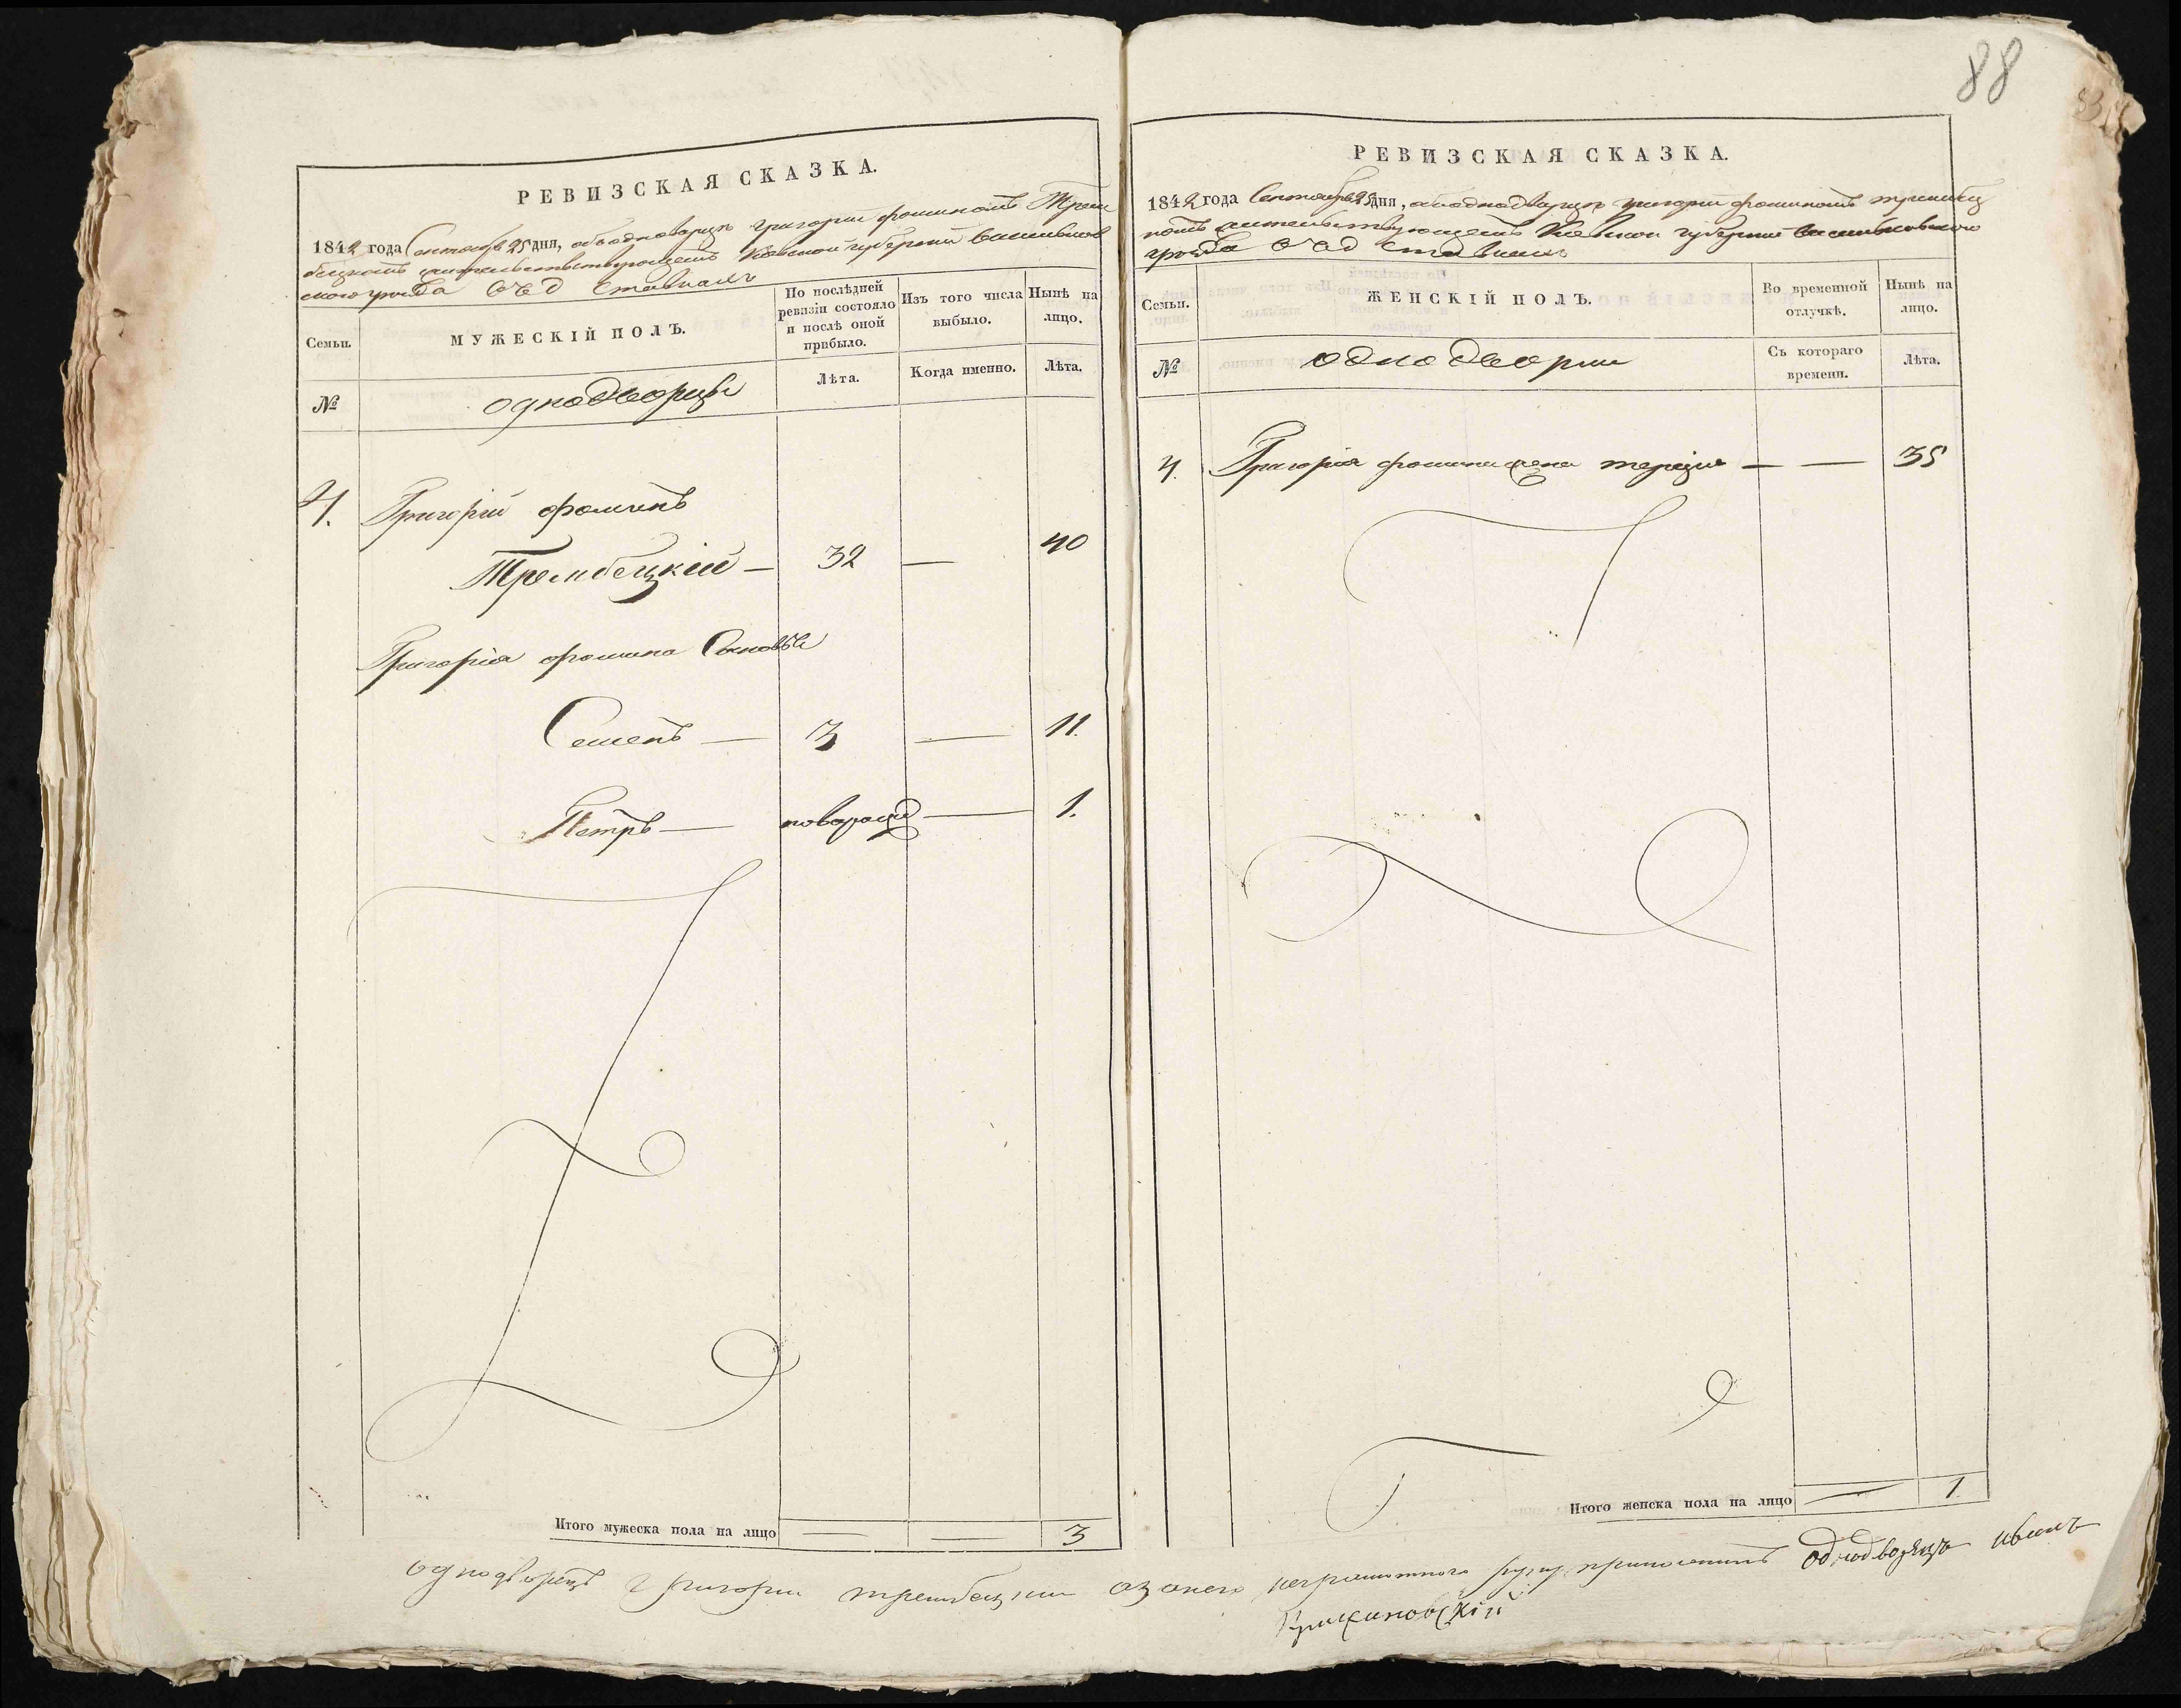 88
РЕВИЗСКАЯ СКАЗКА.
1842 года Сентября 25 дня, ободнодворце Григории фоминомъ Трем
бецкомъ жительствующемъ Киевской губернии Васильков
ского уезда
Семьи.
МУЖЕСКІЙ ПОЛЪ.
По послѣдней
ревизіи состояло
и послѣ оной
прибыло.
Изъ того числа
выбыло.
Нынѣ на
лицо.
№
однодворцы
Лѣта.
Когда именно.
Лѣта.
4. Григорій фоминъ
Трембецкій — 32 — 40
Григорія фомина Сыновья
Семенъ — 3 — 11.
Петръ — новорожд — 1.
Итого мужеска пола на лицо — — 3
РЕВИЗСКАЯ СКАЗКА.
1842 года Сентября 25 дня, ободнодворце григории фоминомъ трембец
комъ жительствующемъ Киевской губернии Васильковского
уезда
Семьи.
ЖЕНСКІЙ ПОЛЪ.
Во временной
отлучкѣ.
Нынѣ на
лицо.
№
однодворки
Съ котораго
времени.
Лѣта.
4. Григорія фомина жена терезия — — 35
Итого женска пола на лицо — 1
однодворецъ григории трембецкии азанего неграмотного руку приложилъ однодворецъ иванъ